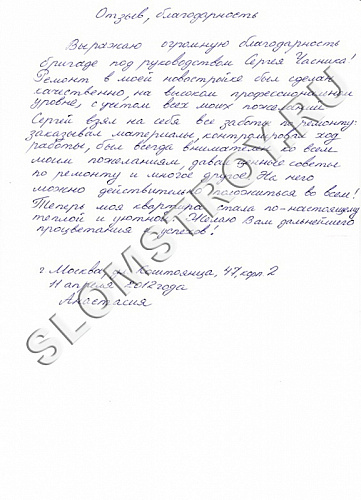 Отзыв, благодарность
Выражаю огромную благодарность
бригаде под руководством Сергея Часника!
Ремонт в моей новостройке был сделан
качественно, на высоком профессиональном
уровне, с учётом всех моих пожеланий
Сергей взял на себя все заботы по ремонту:
заказывал материалы, контролировал ход
работы, был всегда внимателен ко всем
моим пожеланиям, давал ценные советы
по ремонту и многое другое. На него
можно действительно положиться во всем!
Теперь моя квартира стала по-настоящему
теплой и уютной. Желаю Вам дальнейшего
процветания и успехов!
г Москва, ул Коштоянца, 47, корп 2
11 апреля 2012 года
Анастасия
SLOMSTROY.RU